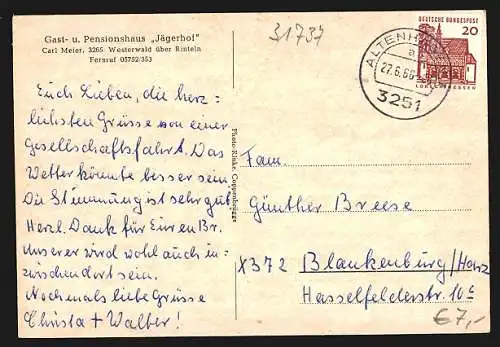 Gast- u. Pensionshaus „Jägerhof"
Carl Meier, 3265 Westerwald über Rinteln
Fernruf 05752/353
31737
Euch Lieben, die herz=
lichsten Grüsse von einer
Gesellschaftsfahrt. Das
Wetter könnte besser sein
Die Stimmung ist sehr gut
Herzl. Dank für Euren Br.
Unserer wird wohl auch in=
zwischen dort sein.
Nochmals liebe Grüsse
Christa + Walter!
Photo-Rinke, Coppenbrügge
DEUTSCHE BUNDESPOST
20
LORSCH HESSEN
ALTENH
a
27.6.66
3251
Fam.
Günther Breese
X372 Blankenburg/Harz
Hasselfelderstr. 10c
€7,-